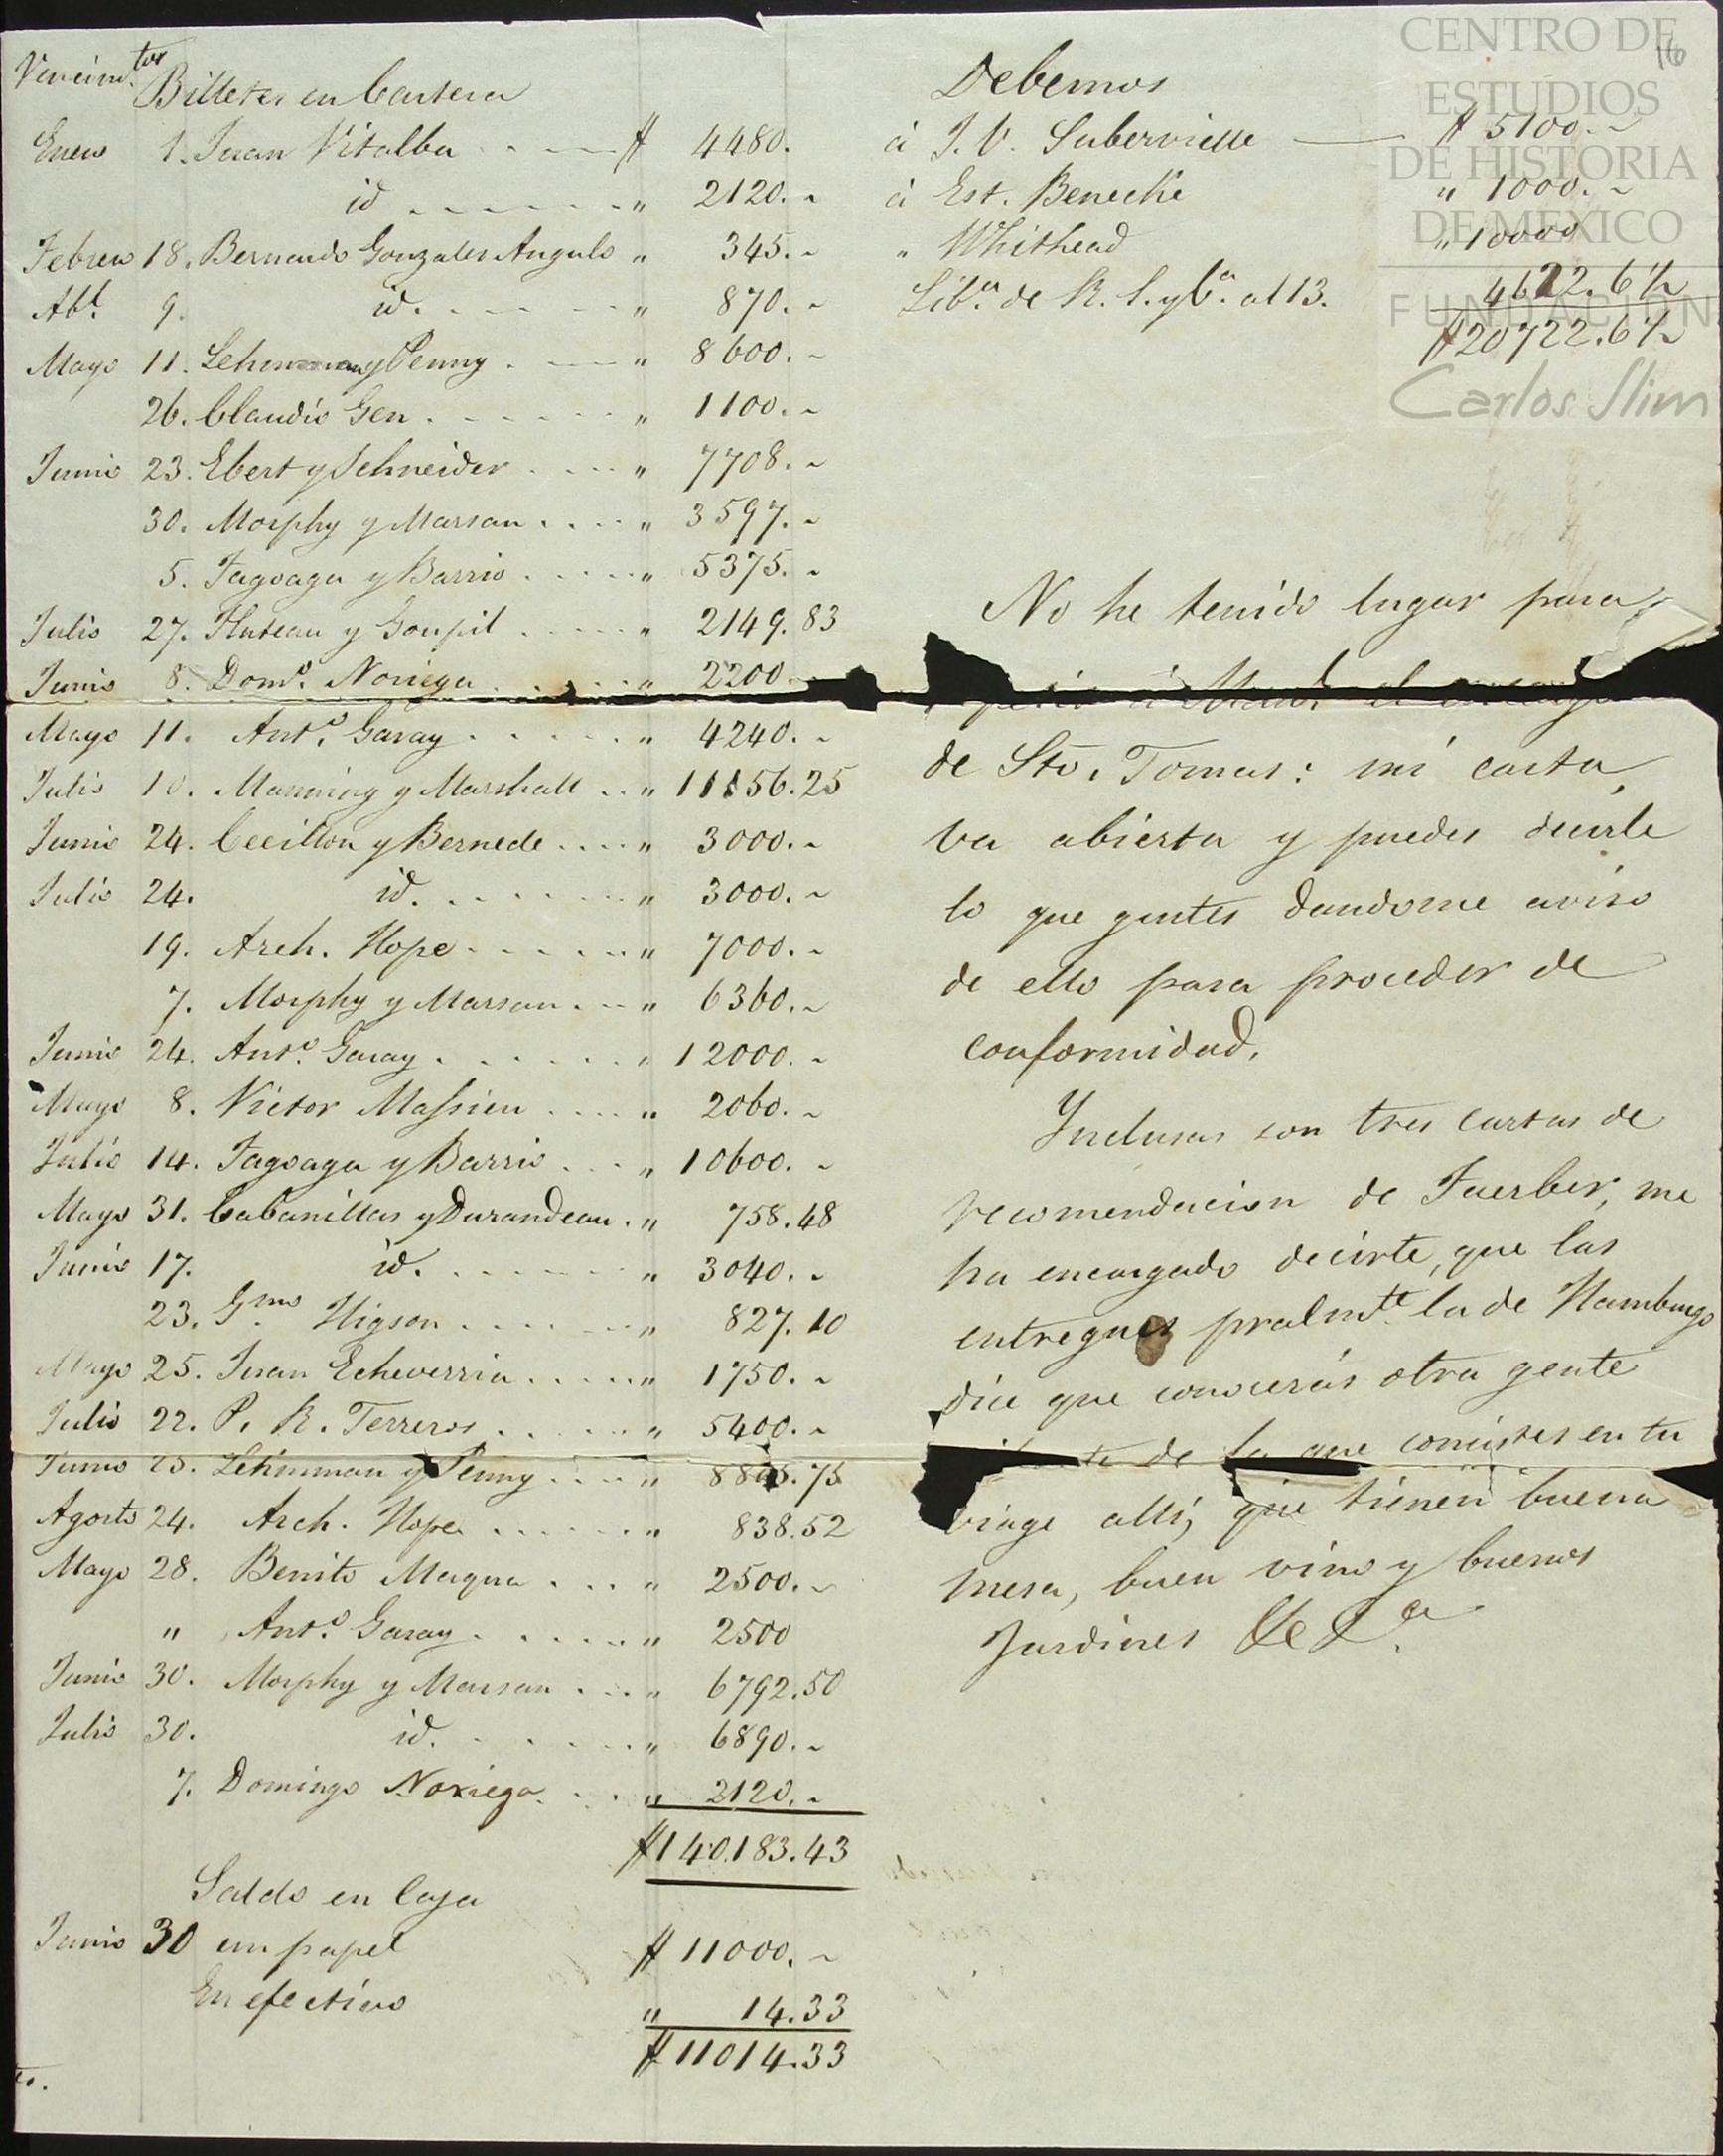 16
Vencim.tos Billetes en Cartera
Enero 1. Juan Vitalba $ 4480.
id " 2120. ~
Febrero 18. Bernardo Gonzales Angulo " 345. ~
Abl. 9. id. " 870. ~
Mayo 11. Lehmann y Penny " 8600. ~
26. Claudio Gen " 1100. ~
Junio 23. Ebert y Schneider " 7708. ~
30. Morphy y Marsan " 3597. ~
5. Fagoaga y Barrio " 5375. ~
Julio 27. Huteau y Goupil " 2149. 83
Junio 8. Domo. Noriega " 2200
Mayo 11. Anto. Garay " 4240. ~
Julio 10. Manning y Marshall " 11156.25
Junio 24. Cecillon y Bernede " 3000. ~
Julio 24. id. " 3000. ~
19. Arch. Hope " 7000. ~
7. Morphy y Marsan " 6360. ~
Junio 24. Anto. Garay " 12000. ~
Mayo 8. Victor Massieu " 2060. ~
Julio 14. Fagoaga y Barrio " 10600. ~
Mayo 31. Cabanillas y Durandeau " 758.48
Junio 17. id. " 3040. ~
23. Gmo. Higson " 827.10
Mayo 25. Juan Echeverria " 1750. ~
Julio 22. P. R. Terreros " 5400. ~
Junio 25. Lehmman y Penny " .75
Agosto 24. Arch. Hope " 838.52
Mayo 28. Benito Maqua " 2500. ~
" Anto. Garay " 2500
Junio 30. Morphy y Marsan " 6792.50
Julio 30. id. " 6890. ~
7. Domingo Noriega " 2120. ~
$140.183.43
Saldo en Caja
Junio 30 em papel $ 11000. ~
En efectivo " 14.33
$11014.33
Debemos
á J. V. Subervielle $ 5100. ~
á Est. Benecke " 1000. ~
" Whithead " 10000
Liba. de R. S. y Ca. al 13. 4622. 6 ½
$20722.6 ½
No he tenido lugar para
el encargo
de Sto. Tomas: mi carta
va abierta y puedes decirle
lo que gustes dandome aviso
de ello para proceder de
conformidad.
Yndusas son tres cartas de
recomendacion de Faerber, me
ha encargado decirte, que las
entregues pralmte. la de Hamburgo
dice que conocerás otra gente
de la que conocistes en tu
viage allí, que tienen buena
mesa, buen vino y buenos
Jardines &c &ca.
CENTRO DE
ESTUDIOS
DE HISTORIA
DE MEXICO
FUNDACIÓN
Carlos Slim